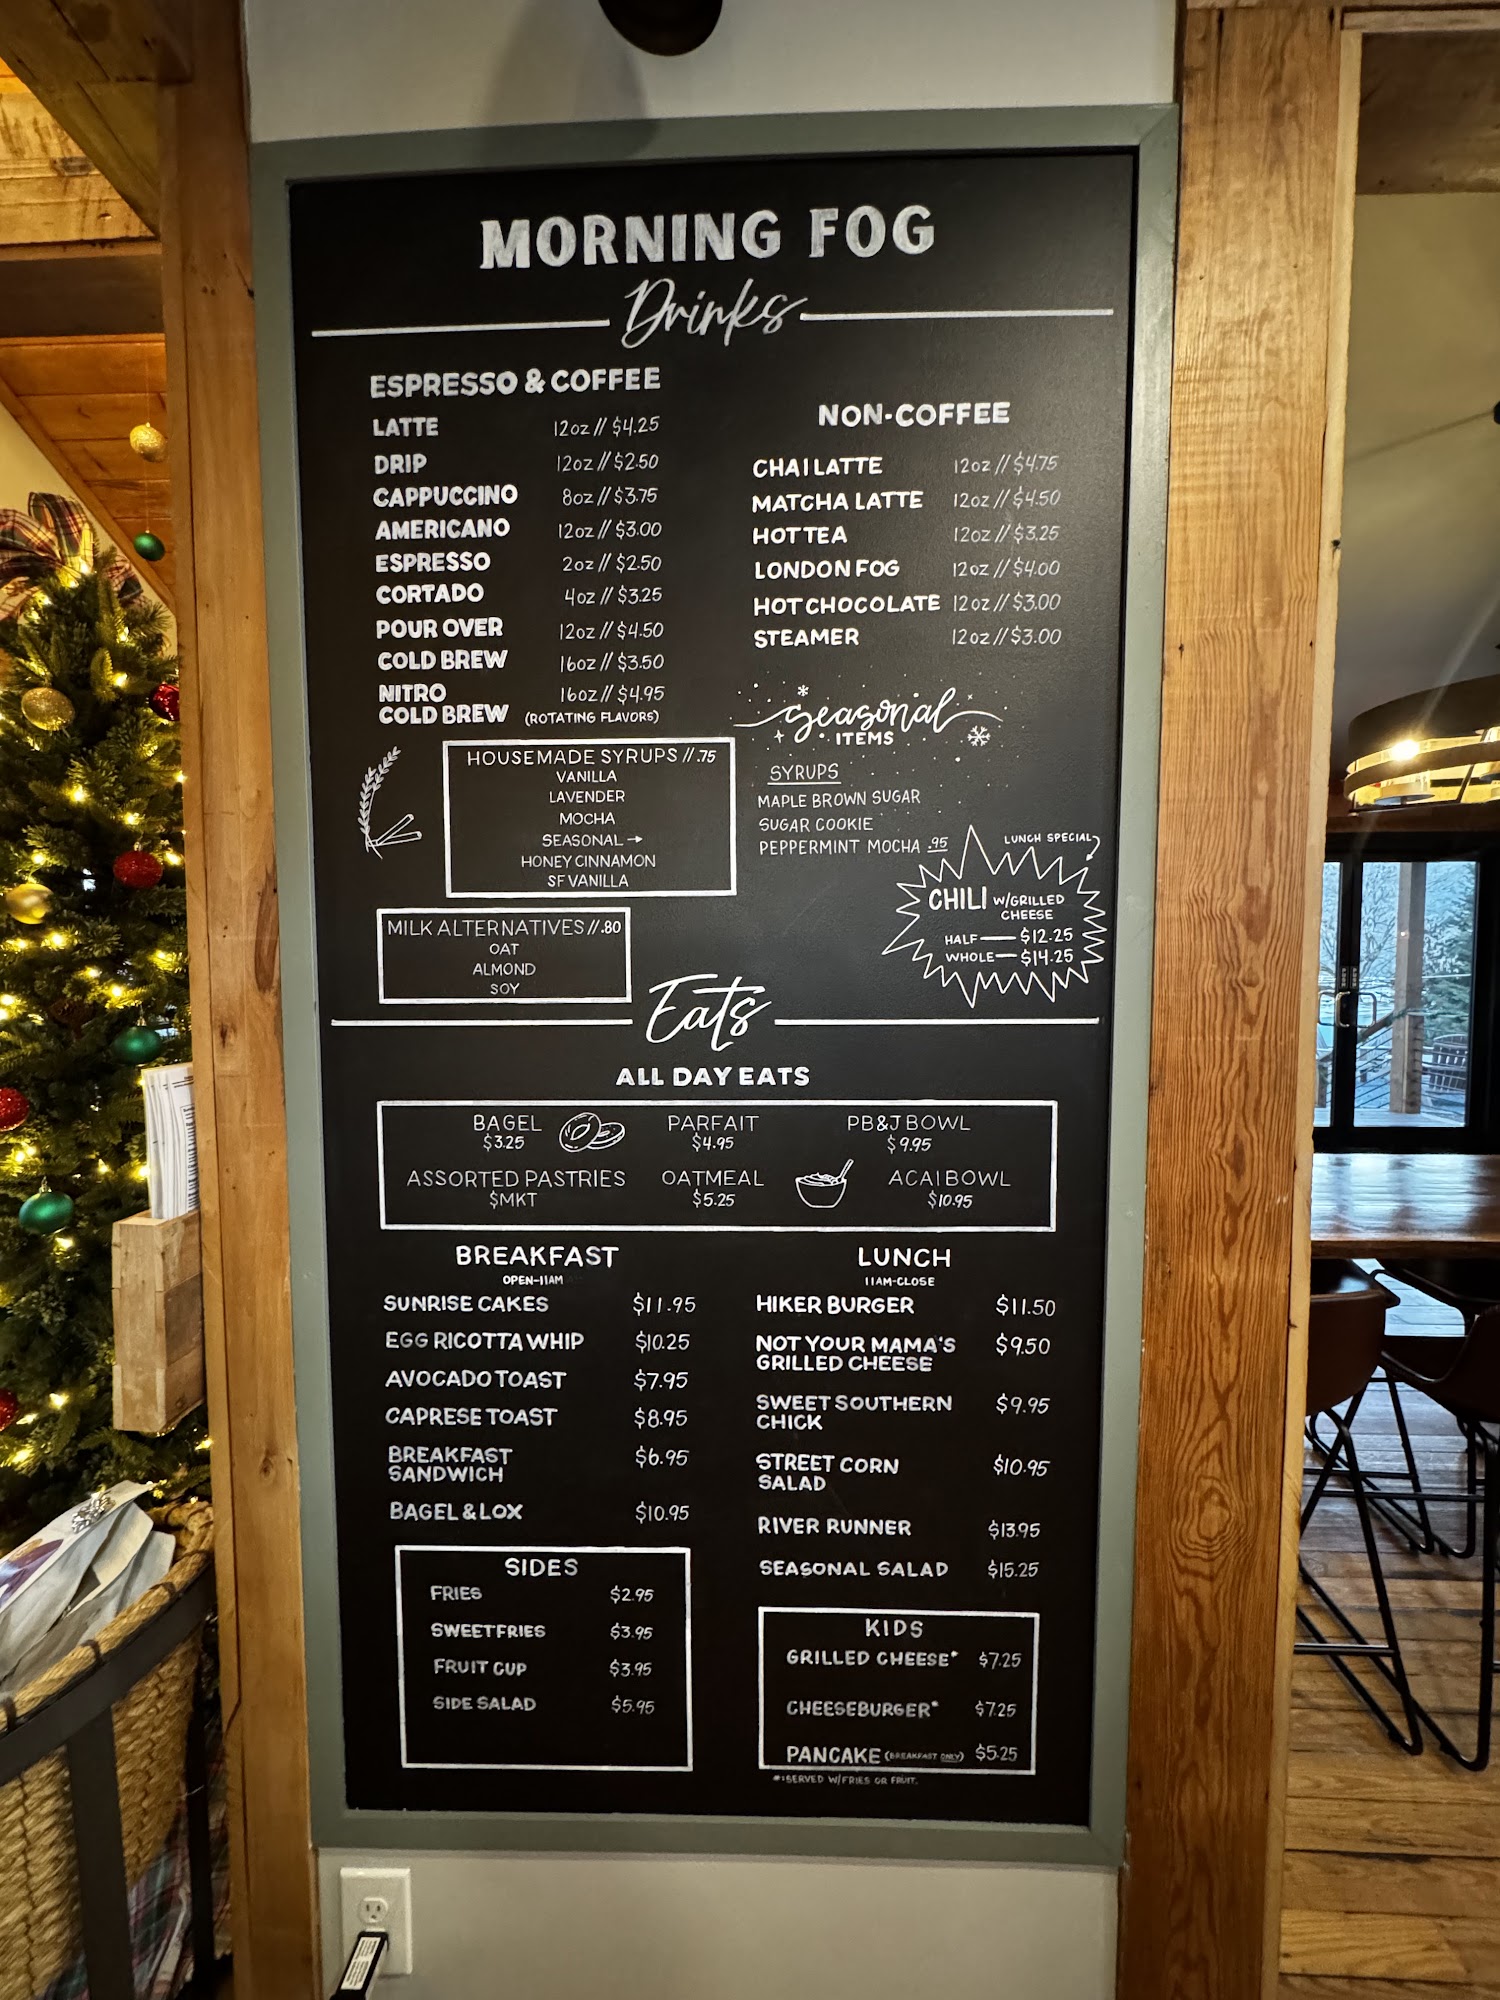 MORNING FOG
Drinks
ESPRESSO & COFFEE
LATTE 12oz // $4.25
DRIP 12oz // $2.50
CAPPUCCINO 8oz // $3.75
AMERICANO 12oz // $3.00
ESPRESSO 2oz // $2.50
CORTADO 4oz // $3.25
POUR OVER 12oz // $4.50
COLD BREW 16oz // $3.50
NITRO 16oz // $4.95
COLD BREW (ROTATING FLAVORS)
NON-COFFEE
CHAI LATTE 12oz // $4.75
MATCHA LATTE 12oz // $4.50
HOT TEA 12oz // $3.25
LONDON FOG 12oz // $4.00
HOT CHOCOLATE 12oz // $3.00
STEAMER 12oz // $3.00
HOUSEMADE SYRUPS // .75
VANILLA
LAVENDER
MOCHA
SEASONAL →
HONEY CINNAMON
SF VANILLA
seasonal
ITEMS
SYRUPS
MAPLE BROWN SUGAR
SUGAR COOKIE
PEPPERMINT MOCHA .95
LUNCH SPECIAL
CHILI W/GRILLED
CHEESE
HALF — $12.25
WHOLE — $14.25
MILK ALTERNATIVES // .80
OAT
ALMOND
SOY
Eats
ALL DAY EATS
BAGEL PARFAIT PB&J BOWL
$3.25 $4.95 $9.95
ASSORTED PASTRIES OATMEAL ACAI BOWL
$MKT $5.25 $10.95
BREAKFAST
OPEN-11AM
SUNRISE CAKES $11.95
EGG RICOTTA WHIP $10.25
AVOCADO TOAST $7.95
CAPRESE TOAST $8.95
BREAKFAST $6.95
SANDWICH
BAGEL & LOX $10.95
SIDES
FRIES $2.95
SWEET FRIES $3.95
FRUIT CUP $3.95
SIDE SALAD $5.95
LUNCH
11AM-CLOSE
HIKER BURGER $11.50
NOT YOUR MAMA'S $9.50
GRILLED CHEESE
SWEET SOUTHERN $9.95
CHICK
STREET CORN $10.95
SALAD
RIVER RUNNER $13.95
SEASONAL SALAD $15.25
KIDS
GRILLED CHEESE* $7.25
CHEESEBURGER* $7.25
PANCAKE (BREAKFAST ONLY) $5.25
*: SERVED W/FRIES OR FRUIT.